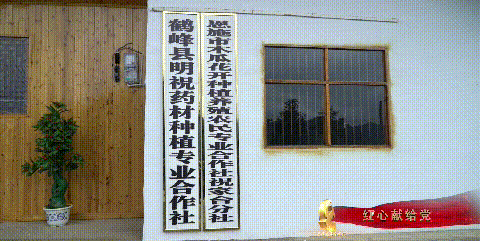 鹤峰县明祝药材种植专业合作社
恩施市木瓜花开种植养殖农民专业合作社祝家台分社
红心献给党